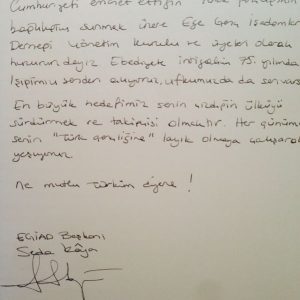 Cumhuriyeti emanet ettiğin Türk gençliğinin
bağlılığını sunmak üzere Ege Genç İşadamları
Derneği Yönetim kurulu ve üyeleri olarak
huzurundayız. Ebediyete intişahın 75. yılında
Işığımızı senden alıyoruz, ufkumuzda da sen varsın
En büyük hedefimiz senin çizdiğin ülküyü
sürdürmek ve takipçisi olmaktır. Her günümüz
senin "Türk gençliğine" layık olmaya çalışarak
yaşıyoruz.
Ne mutlu türküm diyene !
EGİAD Başkanı
Seda Kâya